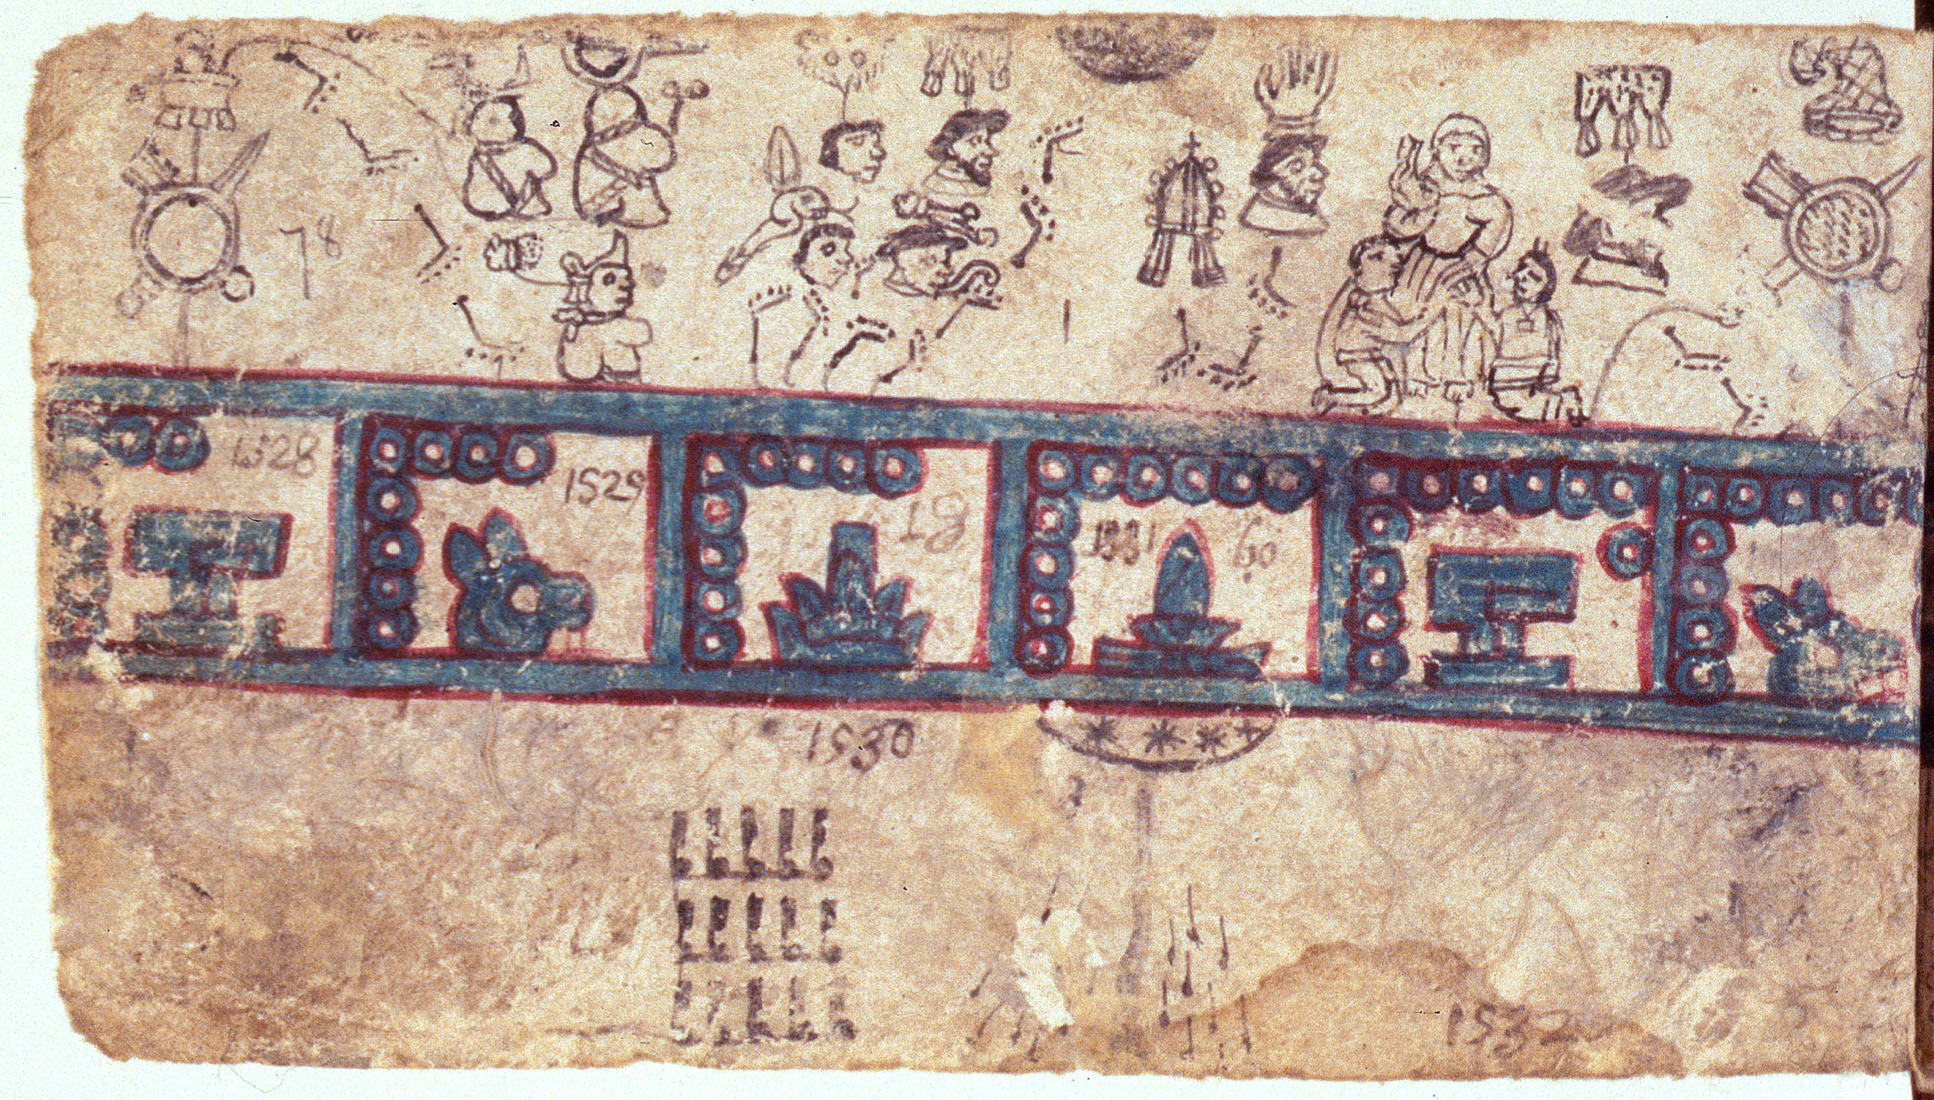 78
1528
1529
1531
60
1530
1532